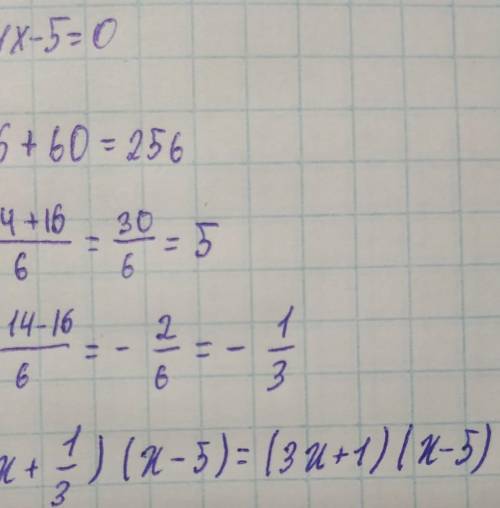 x-5=0
6+60=256
4+16/6 = 30/6 = 5
14-16/6 = - 2/6 = - 1/3
x + 1/3) (x-5) = (3x+1) (x-5)